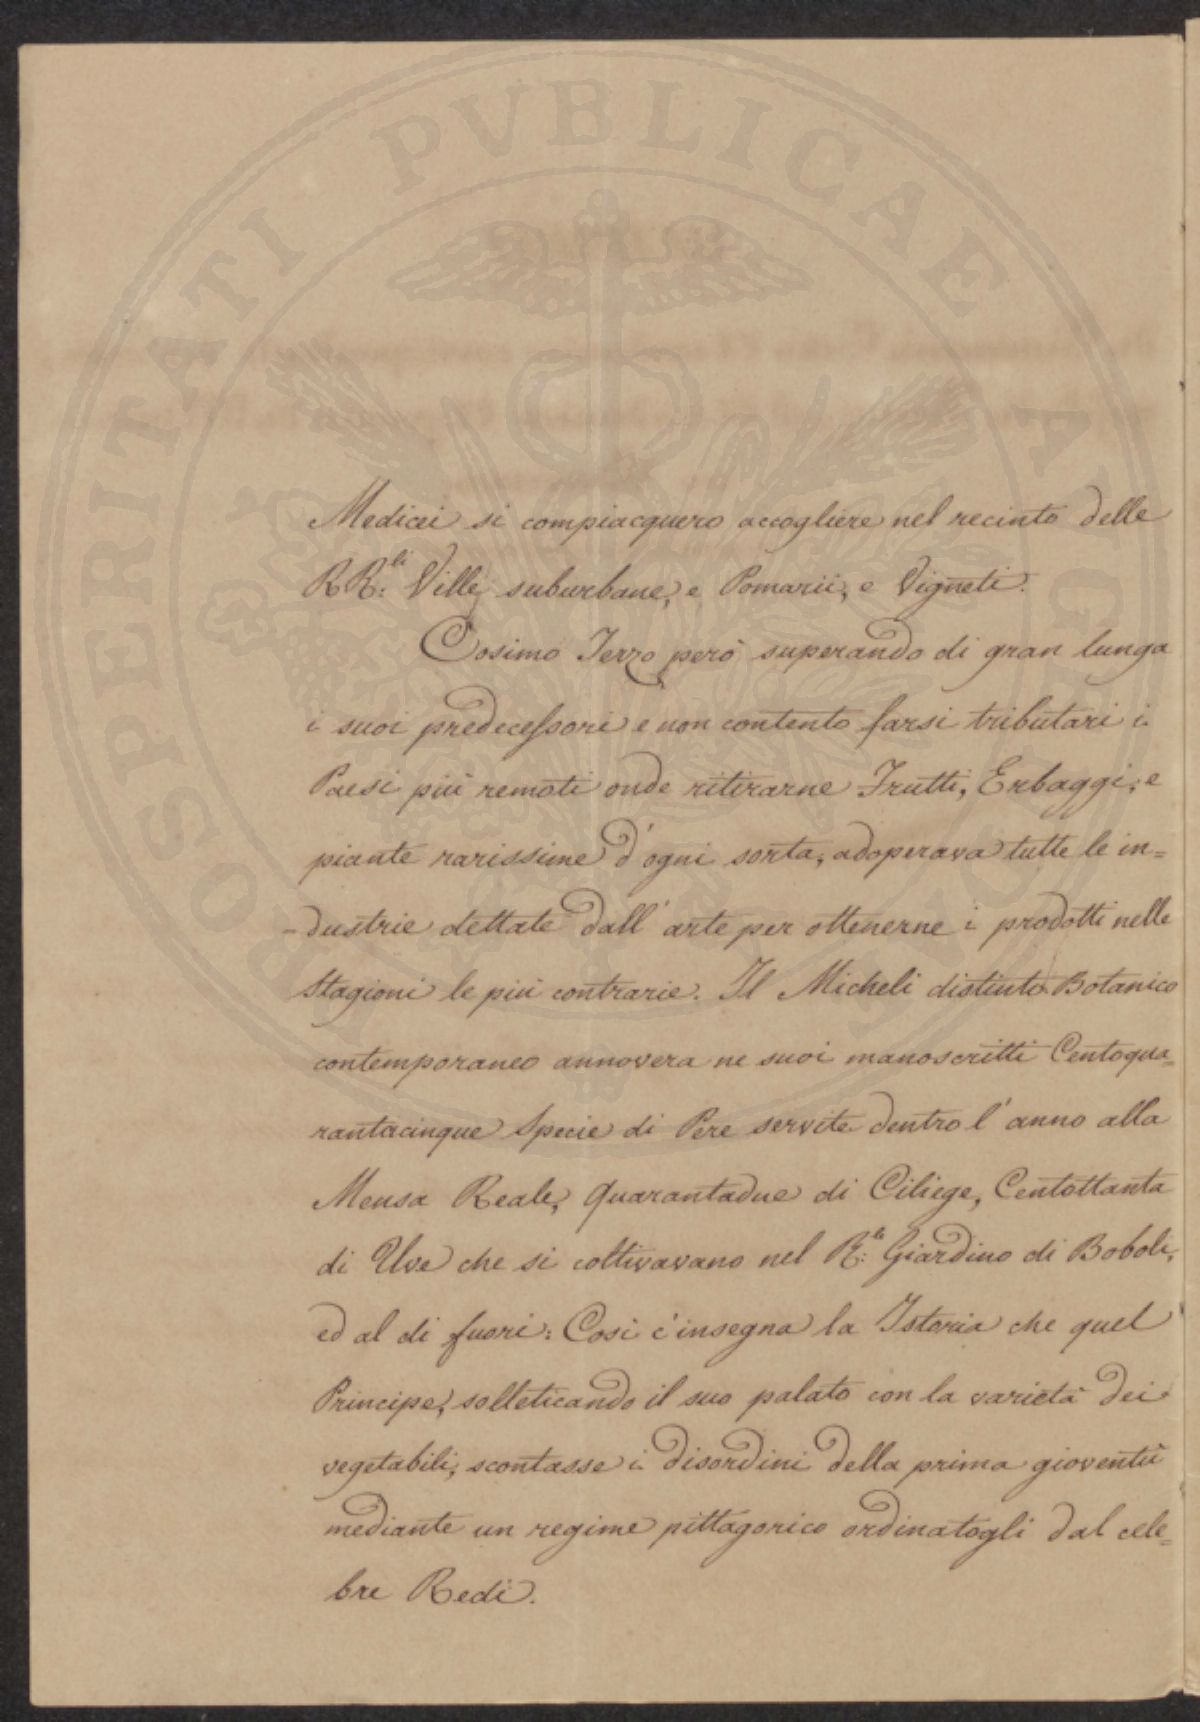 Medicei si compiacquero accogliere nel recinto delle
RR:li Ville suburbane, e Pomarii, e Vigneti.
Cosimo Terzo però superando di gran lunga
i suoi predecessori e non contento farsi tributari i
Paesi più remoti onde ritirarne Frutti, Erbaggi, e
piante rarissime d'ogni sorta, adoperava tutte le in=
-dustrie dettate dall'arte per ottenerne i prodotti nelle
Stagioni le più contrarie. Il Micheli distinto Botanico
contemporaneo annovera ne suoi manoscritti Centoqua=
rantacinque Specie di Pere servite dentro l'anno alla
Mensa Reale, Quarantadue di Ciliege, Centottanta
di Uve che si coltivavano nel R:le Giardino di Boboli,
ed al di fuori: Così c'insegna la Istoria che quel
Principe, solleticando il suo palato con la varietà dei
vegetabili, scontasse i disordini della prima gioventù
mediante un regime pittagorico ordinatogli dal cele=
bre Redi.
PROSPERITATI PVBLICAE AVGENDAE